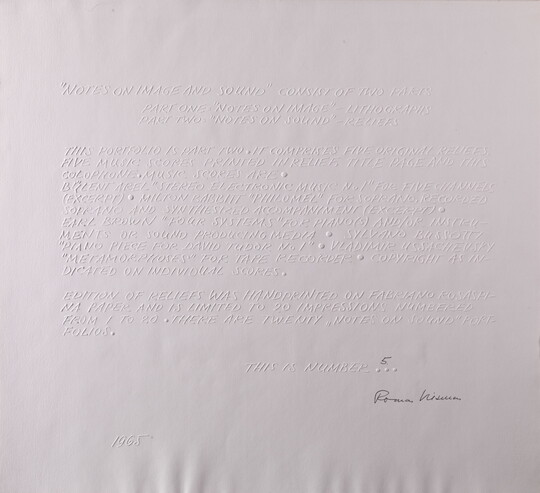 "NOTES ON IMAGE AND SOUND" CONSIST OF TWO PARTS
PART ONE: "NOTES ON IMAGE" – LITHOGRAPHS
PART TWO: "NOTES ON SOUND" – RELIEFS
THIS PORTFOLIO IS PART TWO. IT COMPRISES FIVE ORIGINAL RELIEFS,
FIVE MUSIC SCORES PRINTED IN RELIEF, TITLE PAGE AND THIS
COLOPHONE. MUSIC SCORES ARE.
BÜLENT AREL "STEREO ELECTRONIC MUSIC No 1" FOR FIVE CHANNELS
(EXCERPT). MILTON BABBITT "PHILOMEL" FOR SOPRANO, RECORDED
SOPRANO AND SYNTHESIZED ACCOMPANIMENT (EXCERPT).
EARL BROWN "FOUR SYSTEMS" FOR PIANO(S) AND/OR INSTRU-
MENTS OR SOUND PRODUCING MEDIA. SYLVANO BUSSOTTI
"PIANO PIECE FOR DAVID TUDOR No 1". VLADIMIR USSACHEVSKY
"METAMORPHOSES" FOR TAPE RECORDER. COPYRIGHT AS IN-
DICATED ON INDIVIDUAL SCORES.
EDITION OF RELIEFS WAS HANDPRINTED ON FABRIANO ROSASPI-
NA PAPER AND IS LIMITED TO 20 IMPRESSIONS NUMBERED
FROM 1 TO 20. THERE ARE TWENTY "NOTES ON SOUND" PORT-
FOLIOS.
THIS IS NUMBER 5...
Roman
1965